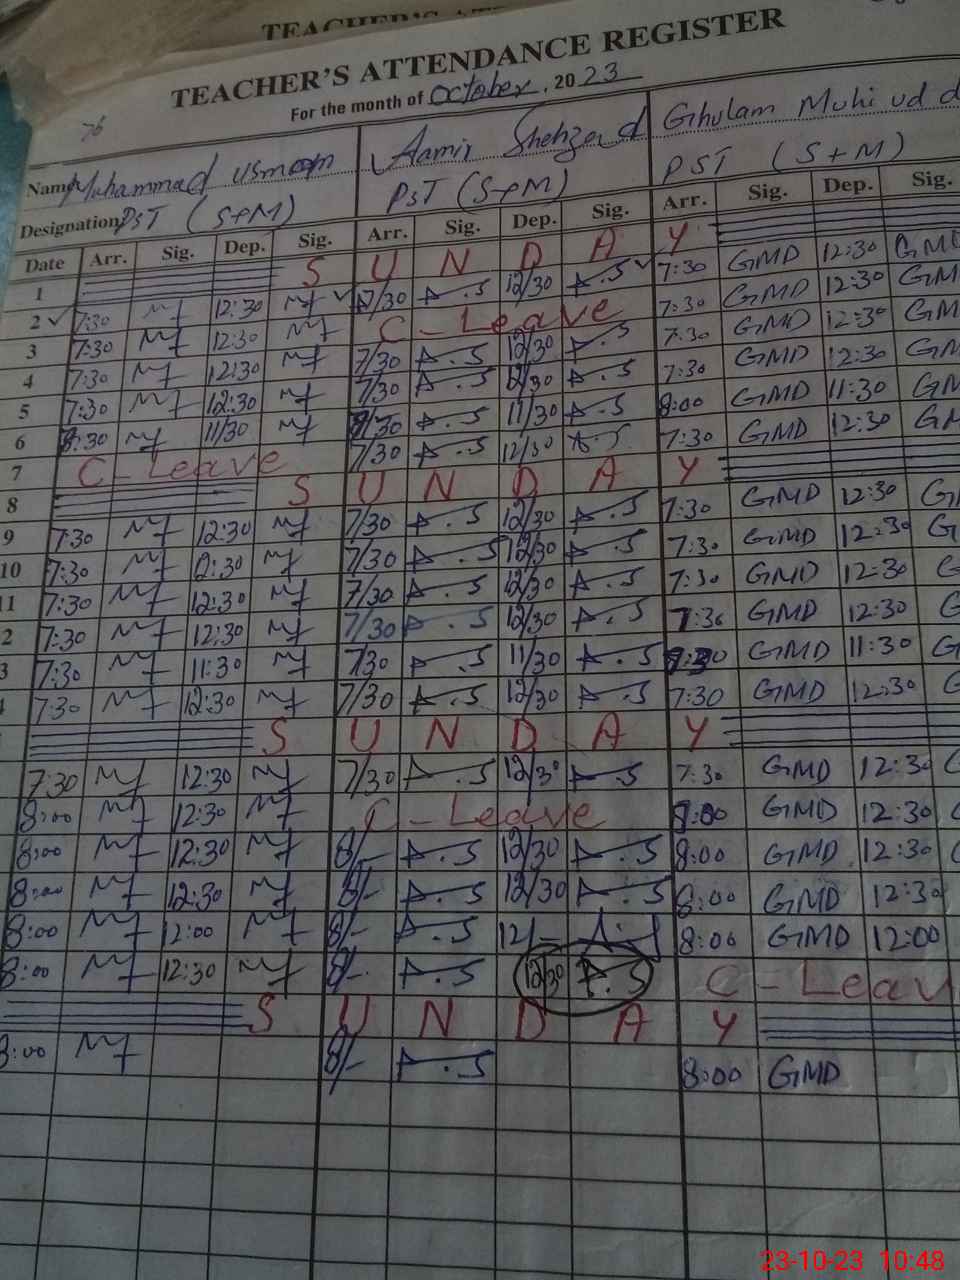 TEACHER'S ATT
TEACHER'S ATTENDANCE REGISTER
For the month of October, 2023
76
Name Muhammad Usman Aamir Shehzad Ghulam Muhi ud d
Designation PST (S+M) PST (S+M) PST (S+M)
Date Arr. Sig. Dep. Sig. Arr. Sig. Dep. Sig. Arr. Sig. Dep. Sig.
1 S U N D A Y
2 7:30 12:30 7/30 A.S 12/30 A.S 7:30 GMD 12:30 GMD
3 7:30 12:30 C-Leave 7:30 GMD 12:30 GM
4 7:30 12:30 7/30 A.S 12/30 A.S 7:30 GMD 12:30 GM
5 7:30 12:30 7/30 A.S 12/30 A.S 7:30 GMD 12:30 GM
6 8:30 11/30 A.S 11/30 A.S 8:00 GMD 11:30 GM
7 C-Leave 7/30 A.S 12/30 A.S 7:30 GMD 12:30 GM
8 S U N D A Y
9 7:30 12:30 7/30 A.S 12/30 A.S 7:30 GMD 12:30 G
10 7:30 7/30 A.S 12/30 A.S 7:30 GMD 12:30 G
11 7:30 12:30 7/30 A.S 12/30 A.S 7:30 GMD 12:30 G
2 7:30 12:30 7/30 A.S 12/30 A.S 7:30 GMD 12:30 G
3 7:30 11:30 730 A.S 11/30 A.S 7:30 GMD 11:30 G
7:30 12:30 7/30 A.S 12/30 A.S 7:30 GMD 12:30 G
S U N D A Y
7:30 12:30 7/30 A.S 12/30 A.S 7:30 GMD 12:30 G
8:00 12:30 C-Leave 8:00 GMD 12:30
8:00 12:30 8/- A.S 12/30 A.S 8:00 GMD 12:30
8:00 12:30 8/- A.S 12/30 A.S 8:00 GMD 12:30
8:00 12:00 8/- A.S 12/- 8:00 GMD 12:00
8:00 12:30 8/- A.S 12/30 A.S C-Leav
S U N D A Y
8:00 8/- A.S 8:00 GMD
23-10-23 10:48